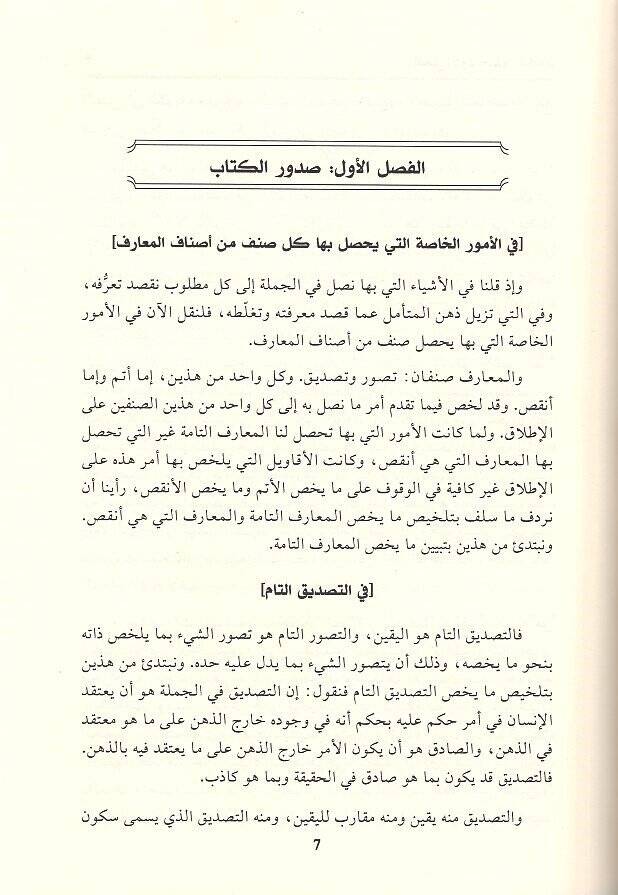 الفصل الأول: صدور الكتاب
[في الأمور الخاصة التي يحصل بها كل صنف من أصناف المعارف]
وإذ قلنا في الأشياء التي بها نصل في الجملة إلى كل مطلوب نقصد تعرُّفه،
وفي التي تزيل ذهن المتأمل عما قصد معرفته وتغلّطه، فلنقل الآن في الأمور
الخاصة التي بها يحصل صنف من أصناف المعارف.
والمعارف صنفان: تصور وتصديق. وكل واحد من هذين، إما أتم وإما
أنقص. وقد لخص فيما تقدم أمر ما نصل به إلى كل واحد من هذين الصنفين على
الإطلاق. ولما كانت الأمور التي بها تحصل لنا المعارف التامة غير التي تحصل
بها المعارف التي هي أنقص، وكانت الأقاويل التي يلخص بها أمر هذه على
الإطلاق غير كافية في الوقوف على ما يخص الأتم وما يخص الأنقص، رأينا أن
نردف ما سلف بتلخيص ما يخص المعارف التامة والمعارف التي هي أنقص.
ونبتدئ من هذين بتبيين ما يخص المعارف التامة.
[في التصديق التام]
فالتصديق التام هو اليقين، والتصور التام هو تصور الشيء بما يلخص ذاته
بنحو ما يخصه، وذلك أن يتصور الشيء بما يدل عليه حده. ونبتدئ من هذين
بتلخيص ما يخص التصديق التام فنقول: إن التصديق في الجملة هو أن يعتقد
الإنسان في أمر حكم عليه بحكم أنه في وجوده خارج الذهن على ما هو معتقد
في الذهن، والصادق هو أن يكون الأمر خارج الذهن على ما يعتقد فيه بالذهن.
فالتصديق قد يكون بما هو صادق في الحقيقة وبما هو كاذب.
والتصديق منه يقين ومنه مقارب لليقين، ومنه التصديق الذي يسمى سكون
7